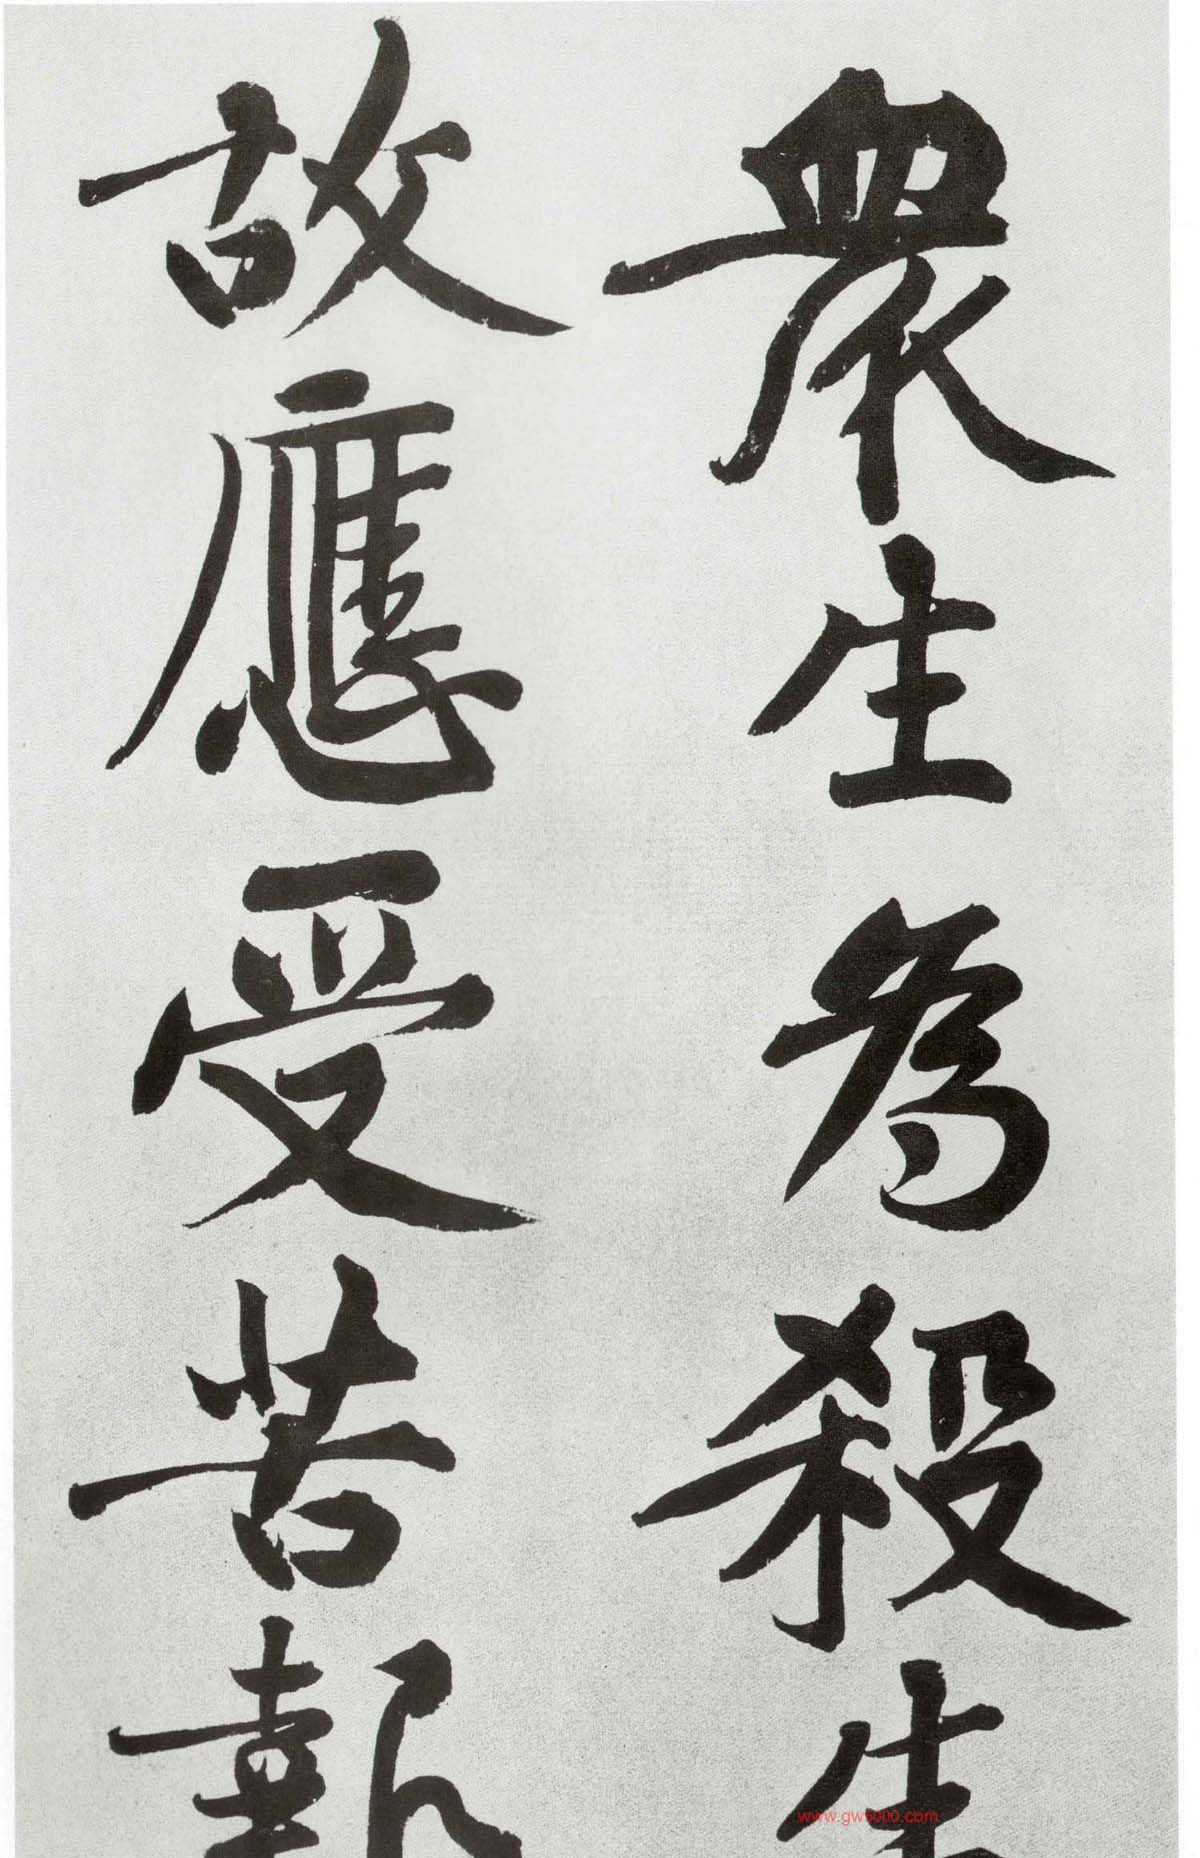 眾生為殺生
故應受苦報
www.gw5000.com